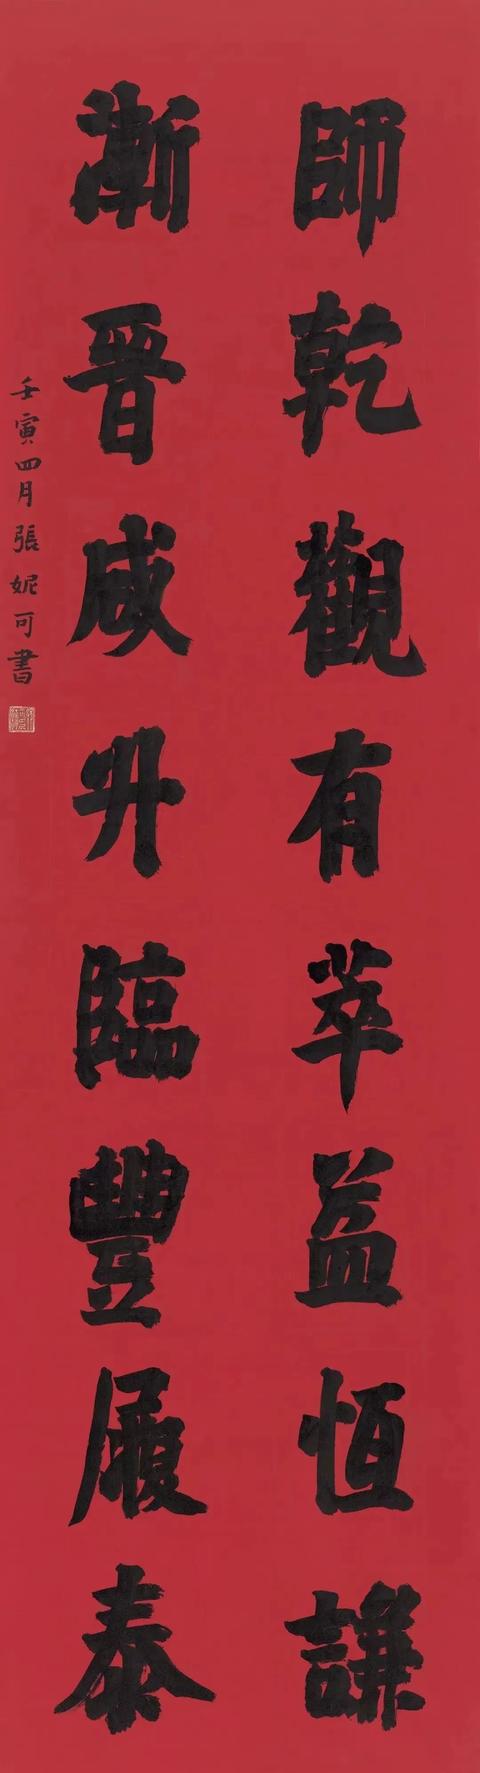 師乾觀有萃益恆謙
漸晉咸升臨豐履泰
壬寅四月張妮可書